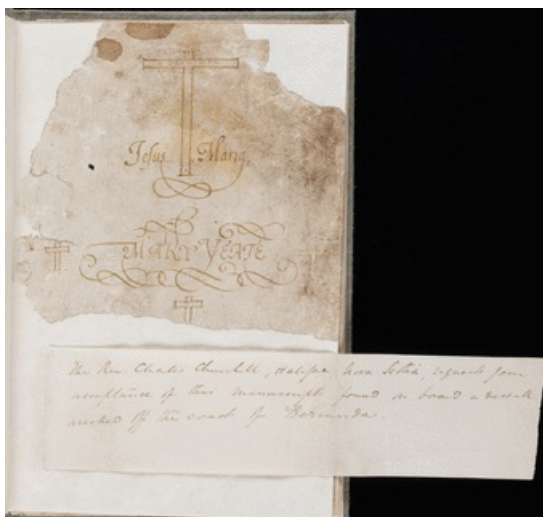 Jesus Maria
MARY YEATE
The Rev. Charles Churchill, Halifax, Nova Scotia, requests your
acceptance of this manuscript found on board a vessel
wrecked off the coast of Bermuda.